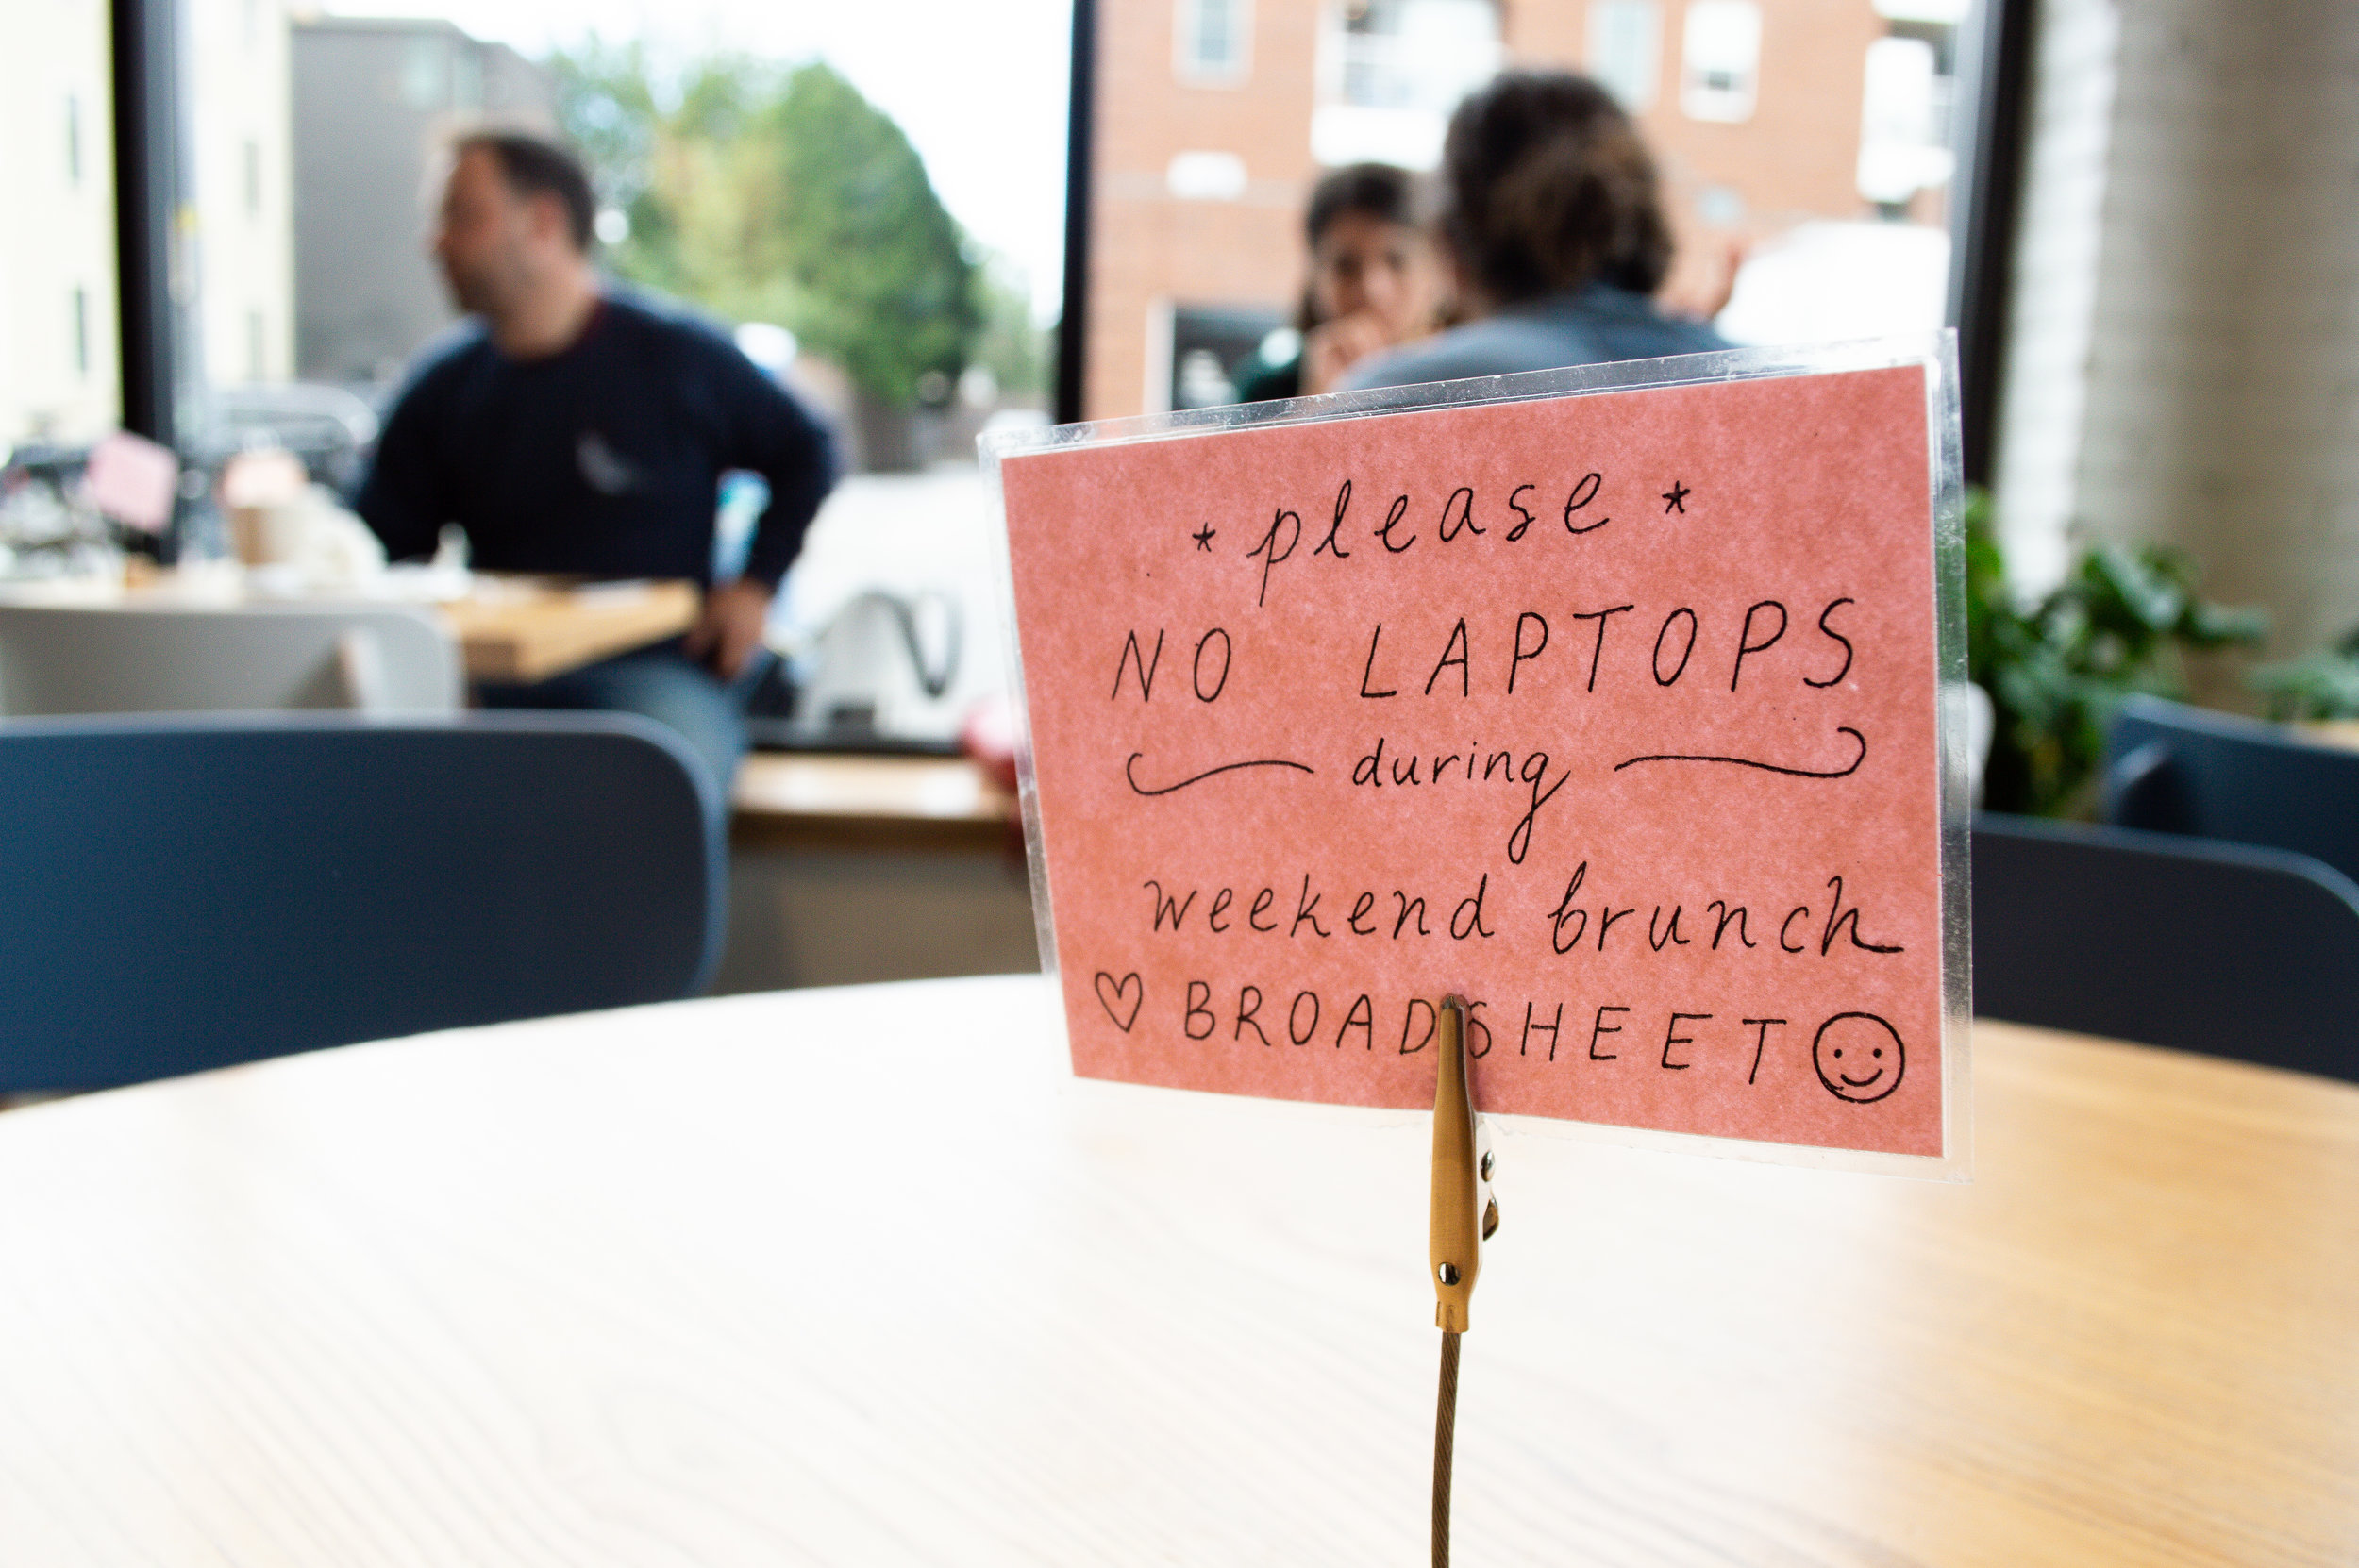 * please *
NO LAPTOPS
during
weekend brunch
♡ BROADSHEET ☺